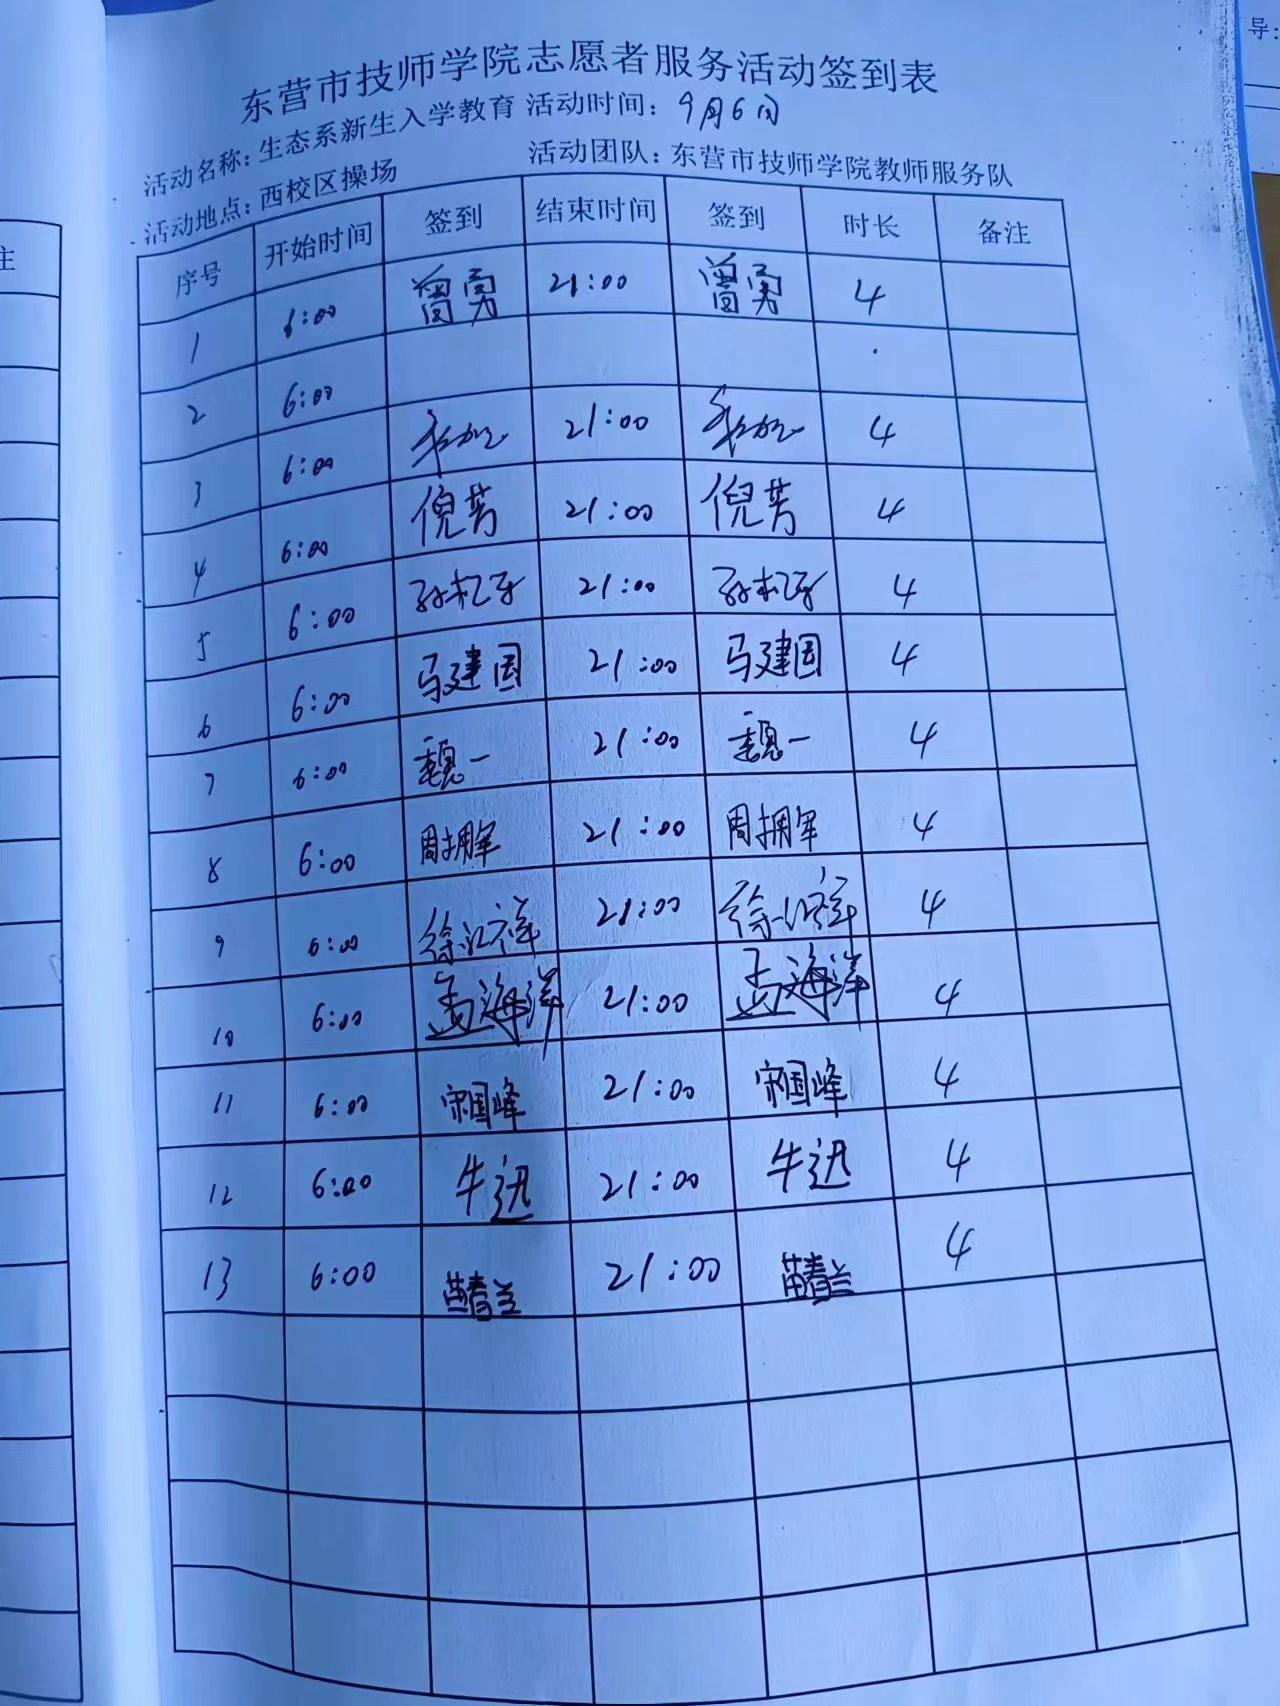 东营市技师学院志愿者服务活动签到表
活动名称：生态系新生入学教育 活动时间：9月6日
活动地点：西校区操场 活动团队：东营市技师学院教师服务队
序号 开始时间 签到 结束时间 签到 时长 备注
1 6:00 曾勇 21:00 曾勇 4
2 6:00
3 6:00 21:00 4
4 6:00 倪芳 21:00 倪芳 4
5 6:00 21:00 4
6 6:00 马建国 21:00 马建国 4
7 6:00 魏一 21:00 魏一 4
8 6:00 周拥军 21:00 周拥军 4
9 6:00 21:00 4
10 6:00 孟海洋 21:00 孟海洋 4
11 6:00 宋国峰 21:00 宋国峰 4
12 6:00 牛迅 21:00 牛迅 4
13 6:00 苗春兰 21:00 苗春兰 4
注
导：